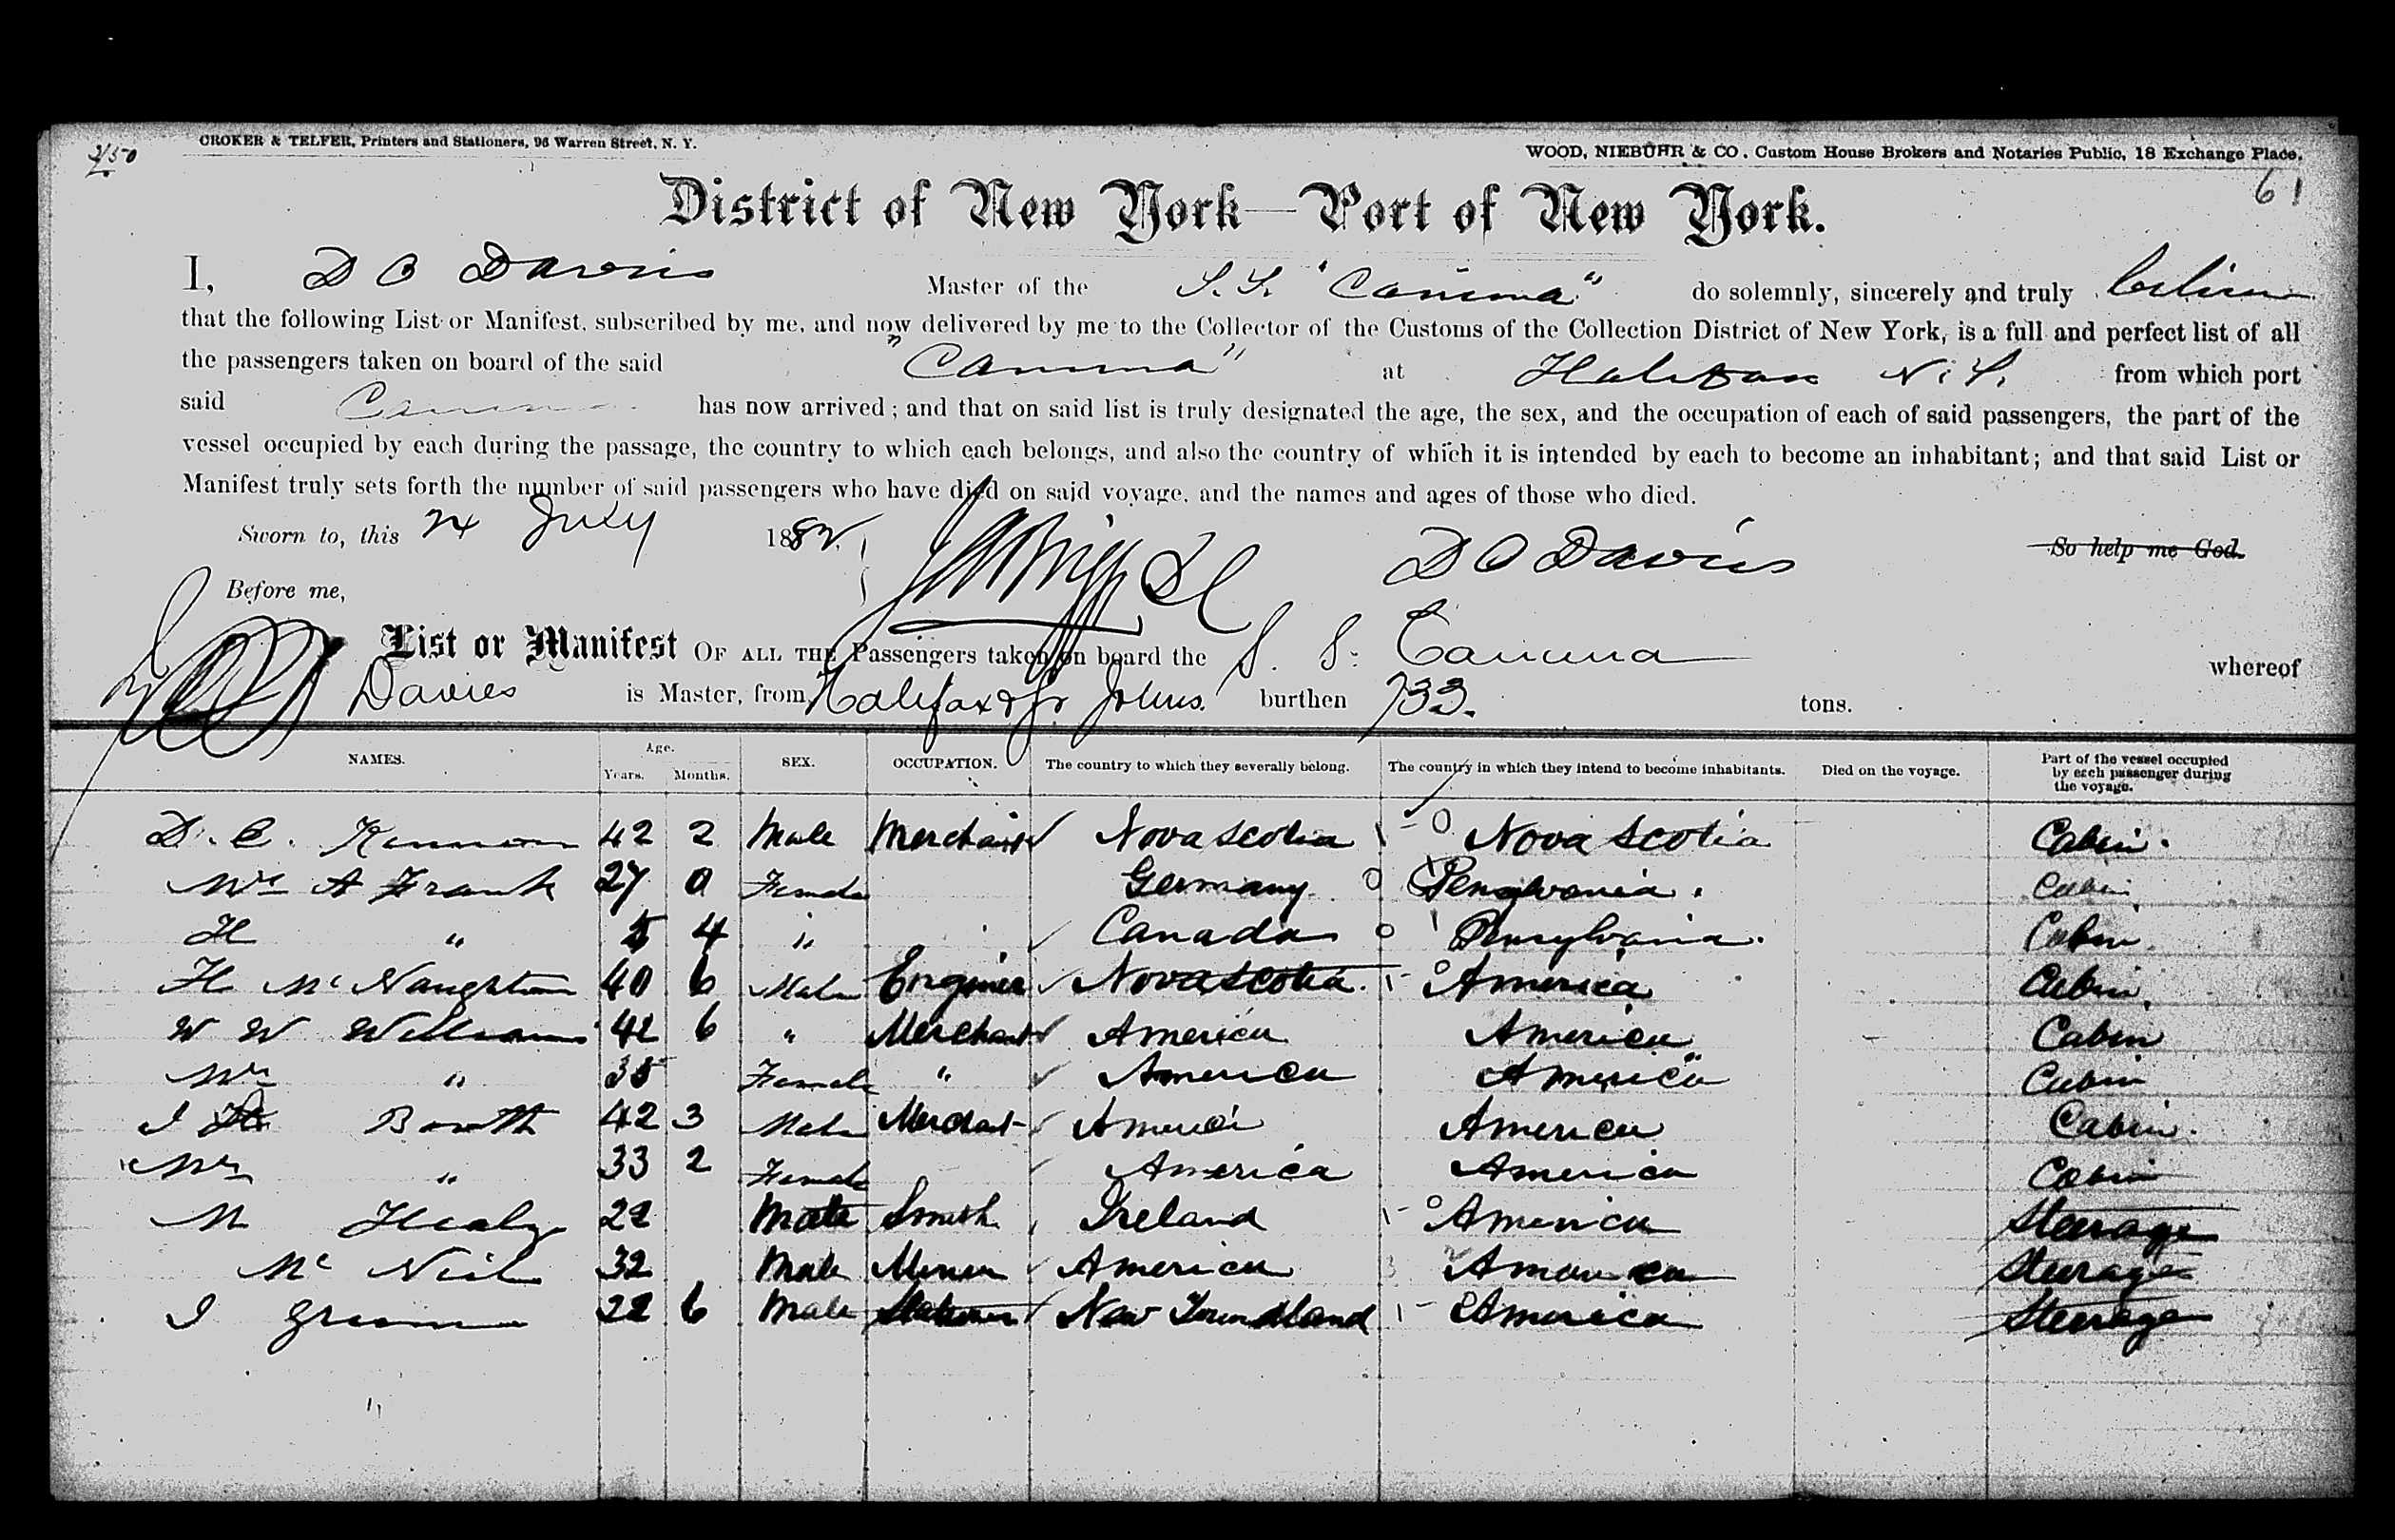 2150
CROKER & TELFER, Printers and Stationers, 96 Warren Street, N. Y.
WOOD, NIEBUHR & CO. Custom House Brokers and Notaries Public, 18 Exchange Place.
61
District of New York—Port of New York.
I, D O Davis Master of the S.S. "Canima" do solemnly, sincerely and truly
that the following List or Manifest, subscribed by me, and now delivered by me to the Collector of the Customs of the Collection District of New York, is a full and perfect list of all
the passengers taken on board of the said "Canima" at Halifax N.S. from which port
said Canima has now arrived; and that on said list is truly designated the age, the sex, and the occupation of each of said passengers, the part of the
vessel occupied by each during the passage, the country to which each belongs, and also the country of which it is intended by each to become an inhabitant; and that said List or
Manifest truly sets forth the number of said passengers who have died on said voyage, and the names and ages of those who died.
Sworn to, this 24 July 1882. D O Davis So help me God.
Before me,
List or Manifest OF ALL THE Passengers taken on board the S. S. Canima whereof
Davies is Master, from Halifax & St Johns. burthen 733. tons.
NAMES. Age. Years. Months. SEX. OCCUPATION. The country to which they severally belong. The country in which they intend to become inhabitants. Died on the voyage. Part of the vessel occupied by each passenger during the voyage.
D. C. 42 2 Male Merchant Nova Scotia Nova Scotia Cabin.
Mrs A Frank 27 0 Female Germany Pensylvania. Cabin
H " 5 4 " Canada Pensylvania. Cabin
H McNaughton 40 6 Male Engineer Nova Scotia. America Cabin
W W Williams 42 6 " Merchant America America Cabin
Mrs " 35 Female " America America Cabin
I Booth 42 3 Male Merchant America America Cabin.
Mrs " 33 2 Female America America Cabin
M Healy 22 Male Smith Ireland America Steerage
Mc Neil 32 Male Miner America America Steerage
I 22 6 Male New Foundland America Steerage